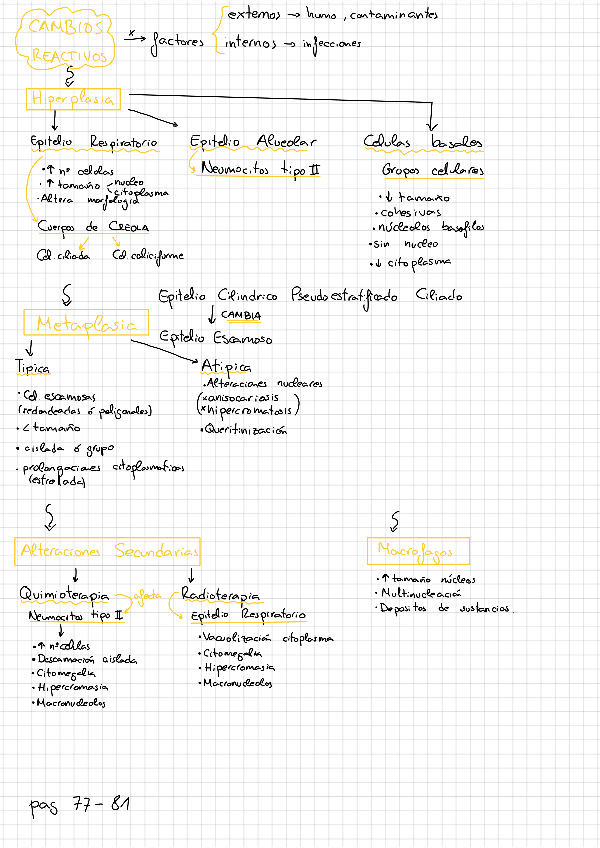 CAMBIOS
REACTIVOS
x → factores
externos → humo, contaminantes
internos → infecciones
Hiperplasia
Epitelio Respiratorio
• ↑ nº celulas
• ↑ tamaño nucleo
citoplasma
• Altera morfología
Cuerpos de CREOLA
Cel. ciliada Cel. caliciforme
Epitelio Alveolar
Neumocitos tipo II
Celulas basales
Grupos celulares
• ↓ tamaño
• cohesivas
• núcleolos basofilos
• sin nucleo
• ↓ citoplasma
Epitelio Cilindrico Pseudoestratificado Ciliado
↓ CAMBIA
Epitelio Escamoso
Metaplasia
Tipica
• Cel. escamosas
(redondeadas ó poligonales)
• < tamaño
• aislada ó grupo
• prolongaciones citoplasmaticas
(estrellada)
Atipica
• Alteraciones nucleares
(* anisocariosis
* hipercromatosis)
• Queritinización
Alteraciones Secundarias
Quimioterapia → afecta
Neumocitos tipo II
• ↑ nº células
• Descamación aislada
• Citomegalia
• Hipercromasia
• Macronucleolos
Radioterapia
Epitelio Respiratorio
• Vacuolización citoplasma
• Citomegalia
• Hipercromasia
• Macronucleolos
Macrofagos
• ↑ tamaño núcleos
• Multinucleación
• Depositos de sustancias.
pag 77 - 81